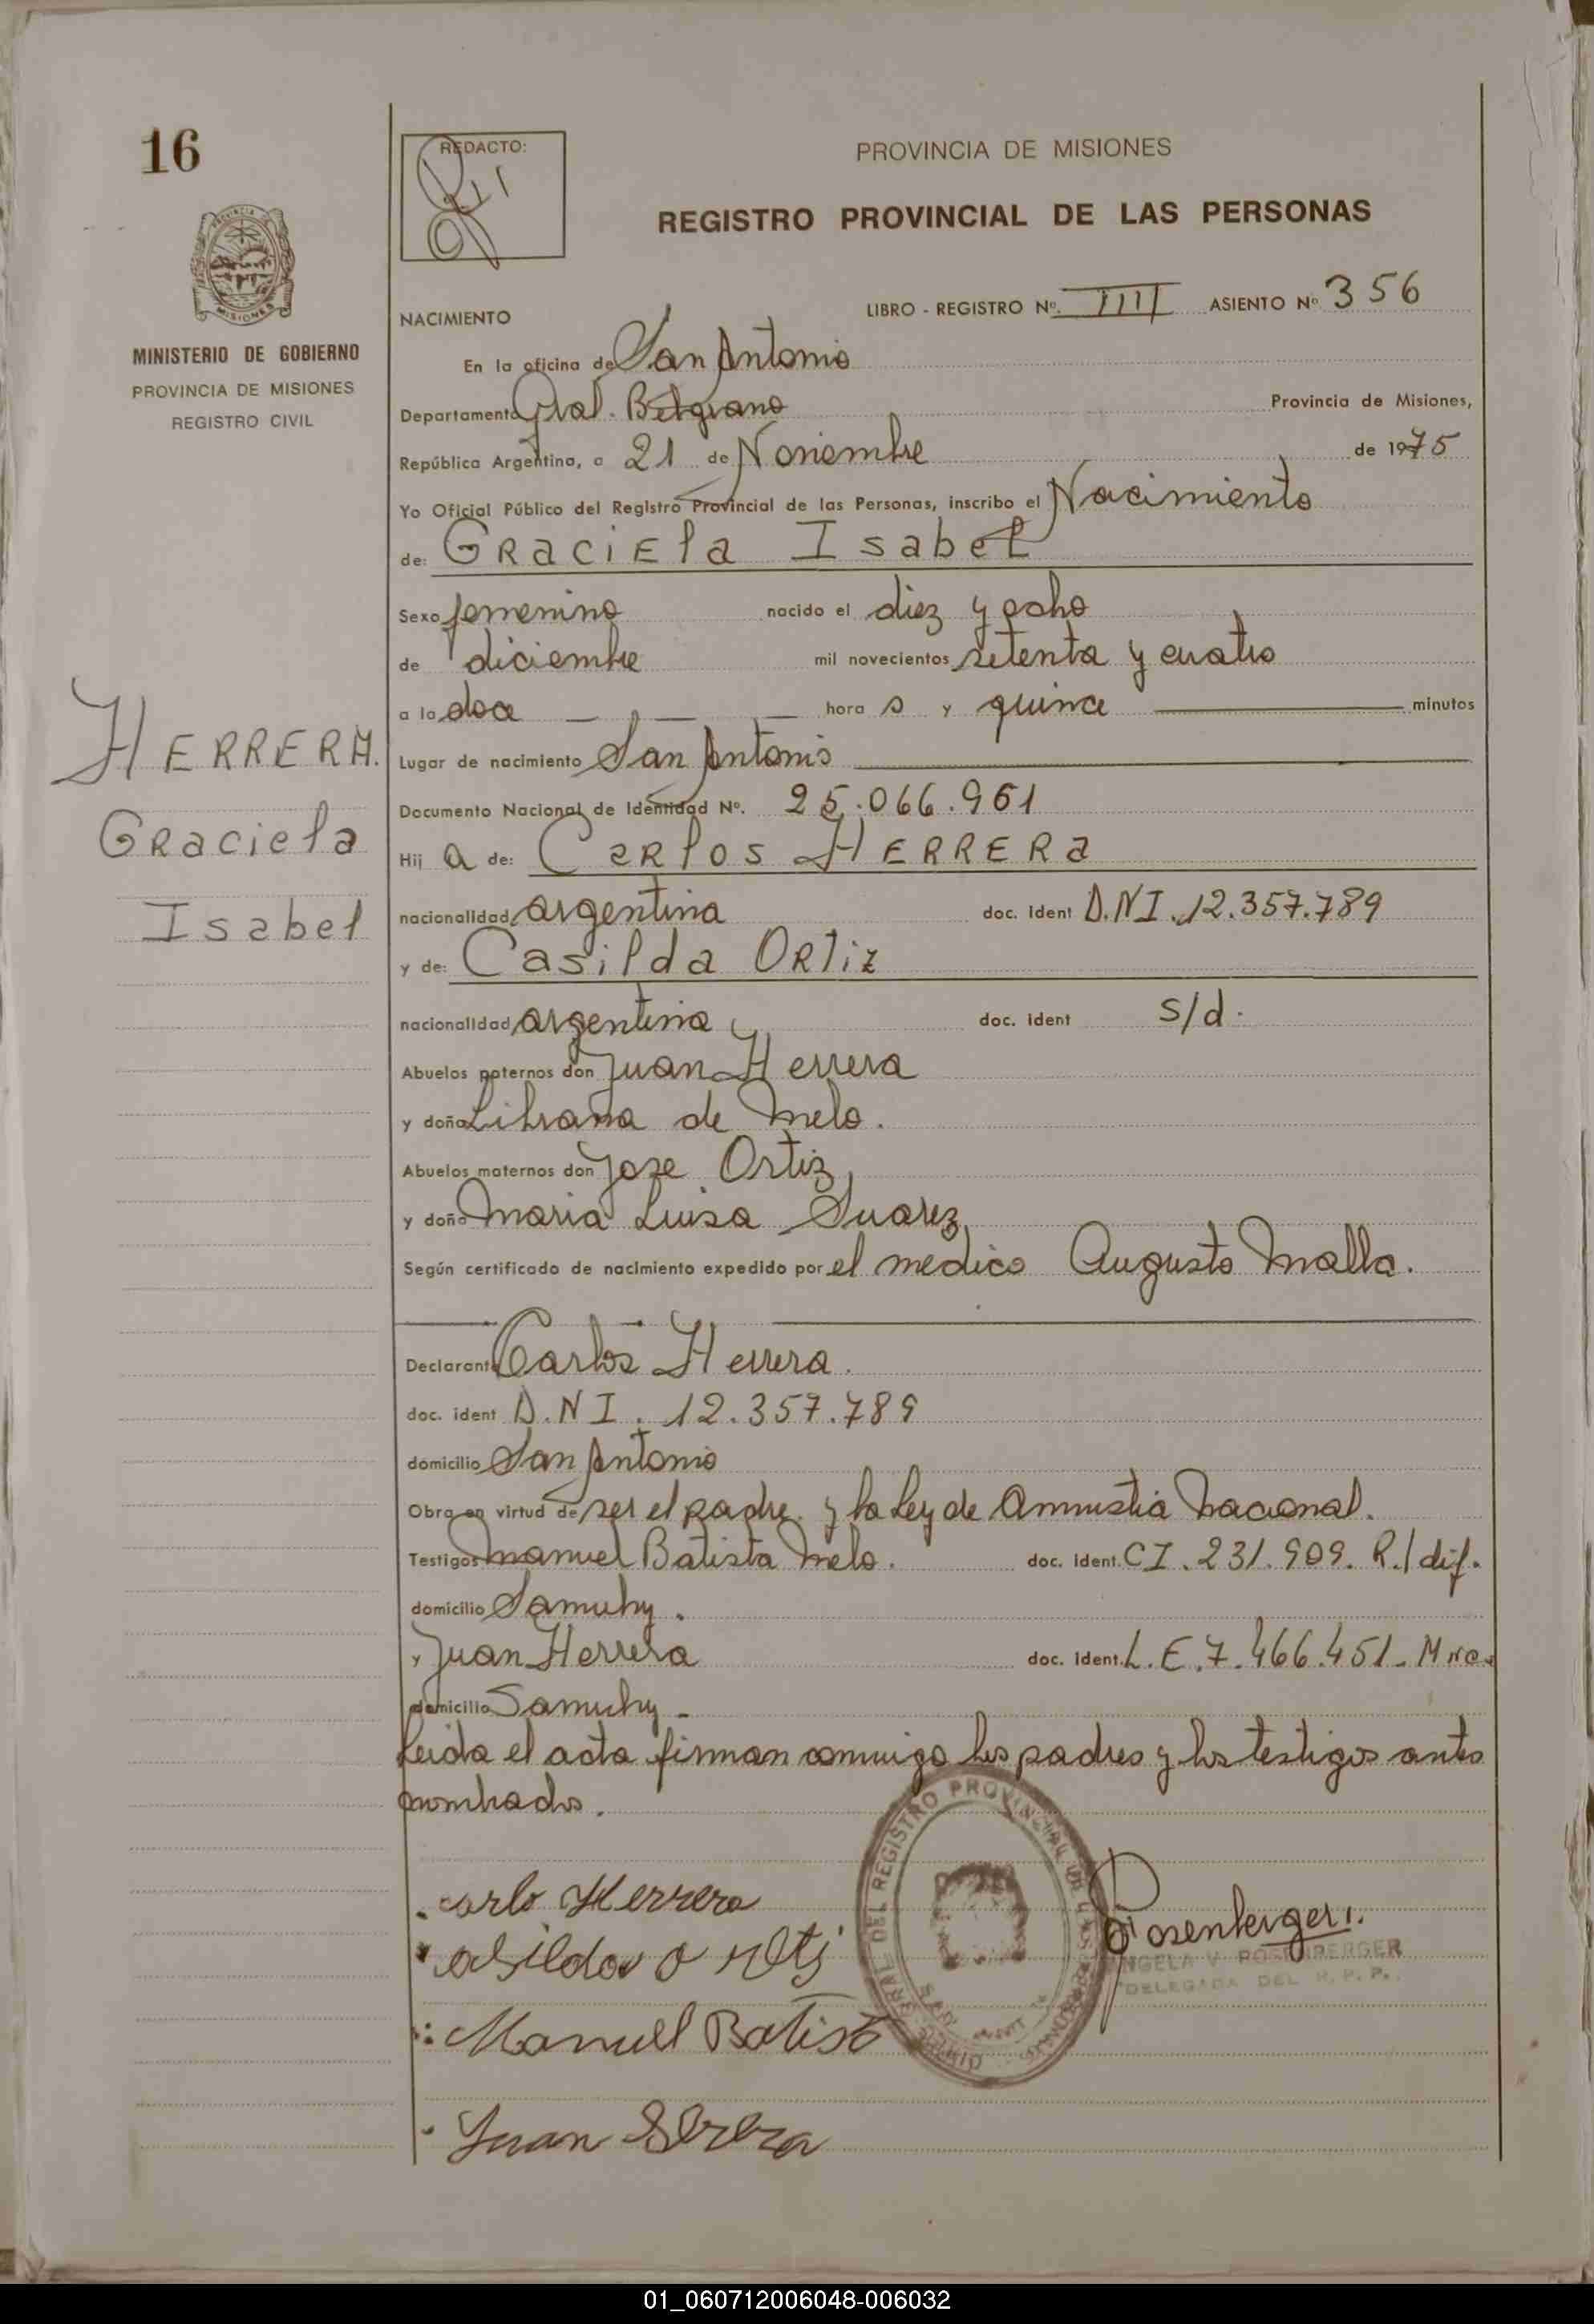 16
MINISTERIO DE GOBIERNO
PROVINCIA DE MISIONES
REGISTRO CIVIL
HERRERA.
Graciela
Isabel
REDACTO:
PROVINCIA DE MISIONES
REGISTRO PROVINCIAL DE LAS PERSONAS
LIBRO - REGISTRO Nº. IIII ASIENTO Nº 356
NACIMIENTO
En la oficina de San Antonio
Departamento Gral. Belgrano Provincia de Misiones,
República Argentina, a 21 de Noviembre de 1975
Yo Oficial Público del Registro Provincial de las Personas, inscribo el Nacimiento
de: Graciela Isabel
Sexo femenino nacido el diez y ocho
de diciembre mil novecientos setenta y cuatro
a la doce hora s y quince minutos
Lugar de nacimiento San Antonio
Documento Nacional de Identidad Nº. 25.066.961
Hij a de: Carlos HERRERA
nacionalidad argentina doc. ident D.N.I. 12.357.789
y de: Casilda Ortiz
nacionalidad argentina doc. ident s/d.
Abuelos paternos don Juan Herrera
y doña Librana de Melo.
Abuelos maternos don Jose Ortiz
y doña Maria Luisa Suarez
Según certificado de nacimiento expedido por el medico Augusto Malla.
Declarante Carlos Herrera.
doc. ident D.N.I. 12.357.789
domicilio San Antonio
Obra en virtud de ser el padre y la Ley de Amnistia Nacional.
Testigos Manuel Batista Melo. doc. ident. CI. 231.909. R./dif.
domicilio Samuhy.
y Juan Herrera doc. ident. L.E.7.466.451. Mnes
domicilio Samuhy -
Leida el acta firman conmigo los padres y los testigos antes
nombrados.
carlo Herrera
Manuel Batist
Juan
Rosenberger
ANGELA V. ROSENBERGER
DELEGADA DEL R.P.P.
DEL REGISTRO PROVINCIAL DE LAS PERSONAS
01_060712006048-006032